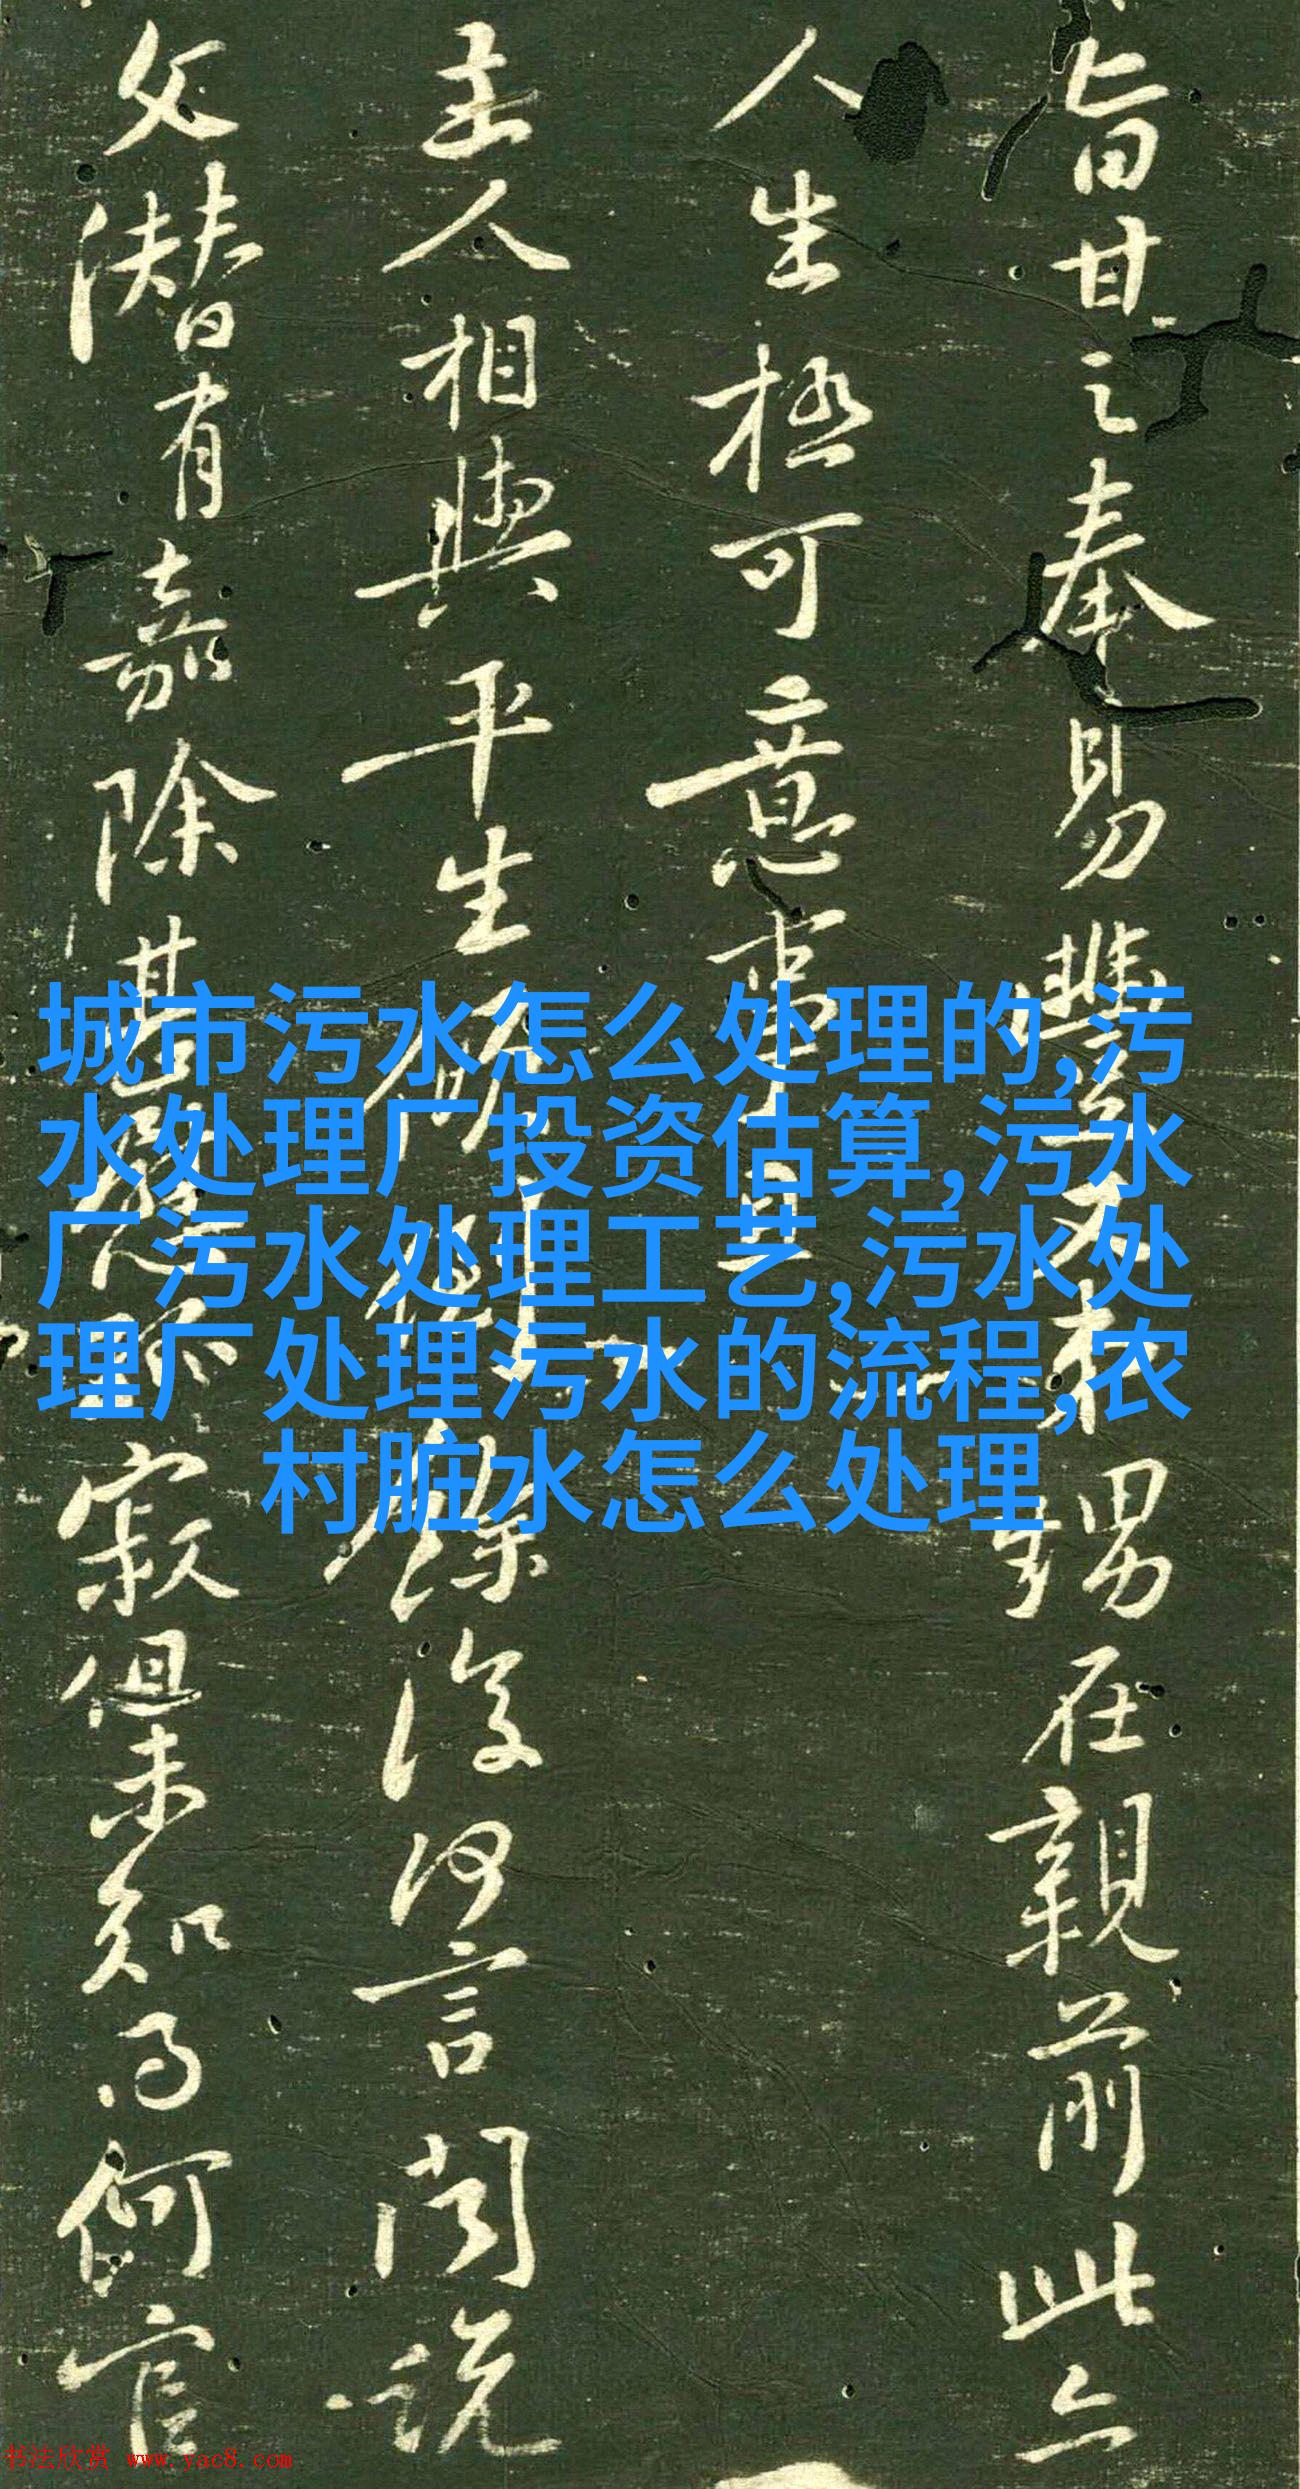 旨甘之奉易豐又有甥在親前此亦
人生極可意事耳
主人相與平生
餘復何言聞說
父潛有嘉除甚慰
寂但未知得何官
城市污水怎么处理的,污
水处理厂投资估算,污水
厂污水处理工艺,污水处
理厂处理污水的流程,农
村脏水怎么处理
书法欣赏 www.yac8.com